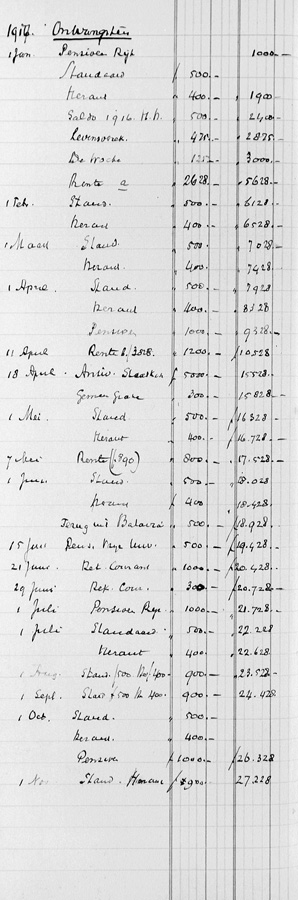 1917. Ontvangsten
1 Jan. Pensioen Rijk 1000.—
Standaard ƒ 500.—
Heraut " 400.— " 1900
Saldo 1916 H.N. " 500.— " 2400
Levensverz. " 475.— " 2875.
De Wachs " 125.— " 3000.
Rente a " 2628.— " 5628.—
1 Feb. Stand. " 500.— " 6128.
Heraut " 400.— " 6528.—
1 Maart Stand. " 500.— " 7028.—
Heraut. " 400.— " 7428.—
1 April Stand. " 500.— " 7928.—
Heraut " 400.— " 8328
Pensioen " 1000.— " 9328.—
11 April Rente b/ " 1200.— ƒ 10528
18 April ƒ 5000.— 15528.—
300.— 15828.—
1 Mei Stand " 500.— ƒ 16328
Heraut " 400.— ƒ 16.728.—
7 Mei Rente (ƒ 890) " 800.— " 17.528.—
1 Juni Stand. " 500.— " 18.028
Heraut ƒ 400 18.428.—
Terug uit Batavia " 500.— ƒ 18.928.—
15 Juni Vrije Univ. " 500.— ƒ 19.428.—
21 Juni Rek. Courant " 1000.— ƒ 20.428.—
29 Juni Rek. Cour. " 300.— ƒ 20.728.—
1 Juli Pensioen Rijk " 1000.— ƒ 21.728.—
1 Juli Standaard " 500.— 22.228
Heraut " 400. 22.628.
1 Aug. Stand. ƒ 500 He ƒ 400.— 900.— 23.528.—
1 Sept. Stand ƒ 500 H 400. " 900.— 24.428
1 Oct. Stand. " 500.—
Heraut. " 400.—
Pensioen ƒ 1000.— ƒ 26.328
1 Nov Stand. Heraut ƒ 900.— 27.228